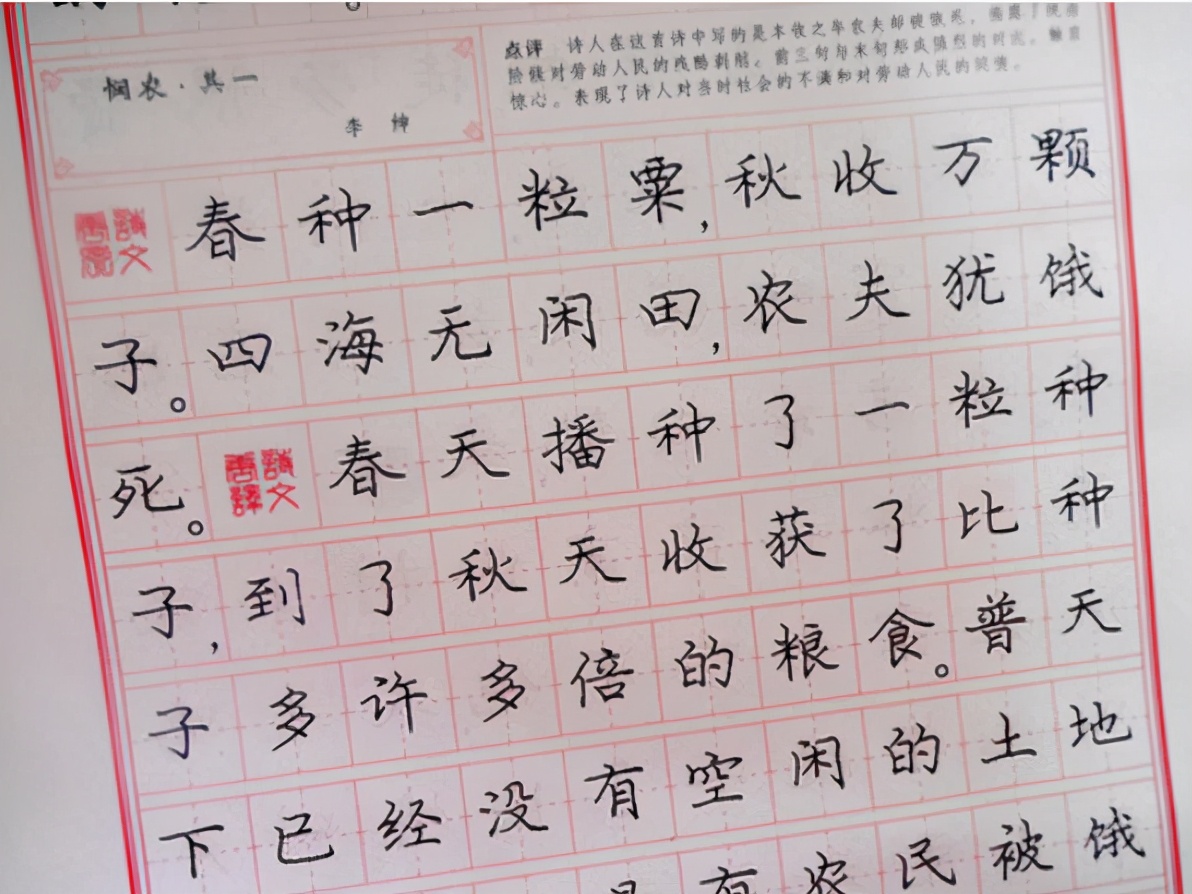 悯农·其一
李绅
点评 诗人在这首诗中写的是丰收之年农夫却被饿死，
对劳动人民的残酷剥削。前三句与末句形成强烈的对比，
惊心。表现了诗人对当时社会的不满和对劳动人民的
春种一粒粟,秋收万颗
子。四海无闲田,农夫犹饿
死。春天播种了一粒种
子,到了秋天收获了比种
子多许多倍的粮食。普天
下已经没有空闲的土地
有农民被饿